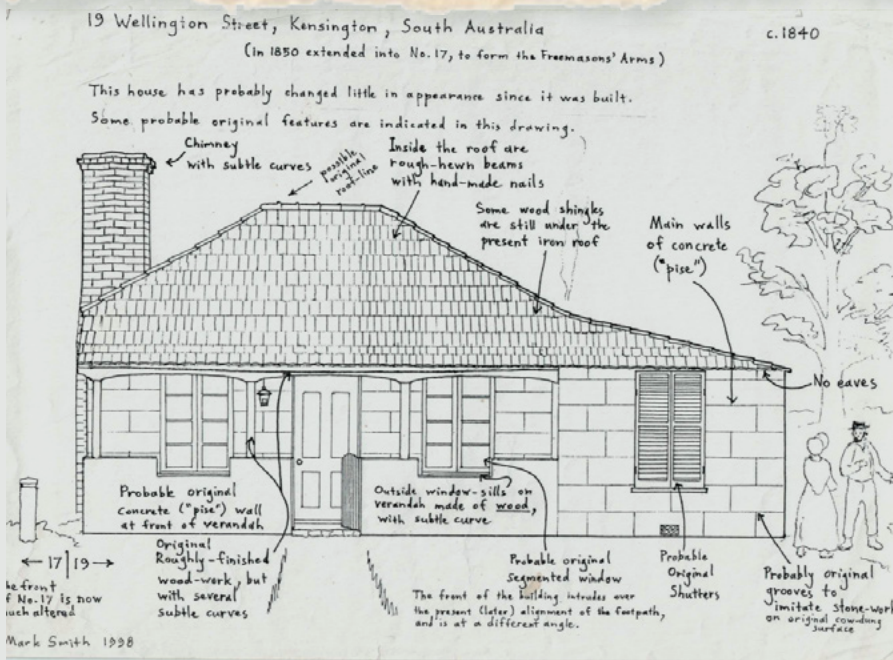 19 Wellington Street, Kensington, South Australia
c.1840
(In 1850 extended into No.17, to form the Freemasons' Arms)
This house has probably changed little in appearance since it was built.
Some probable original features are indicated in this drawing.
Chimney
with subtle curves
possible
original
roof-line
Inside the roof are
rough-hewn beams
with hand-made nails
Some wood shingles
are still under the
present iron roof
Main walls
of concrete
("pise")
No eaves
Probable original
concrete ("pise") wall
at front of verandah
Outside window-sills on
verandah made of wood,
with subtle curve
17 | 19
he front
f No.17 is now
uch altered
Original
Roughly-finished
wood-work, but
with several
subtle curves
Probable original
segmented window
The front of the building intrudes over
the present (later) alignment of the footpath,
and is at a different angle.
Probable
Original
Shutters
Probably original
grooves to
imitate stone-work
on original cow-dung
surface
Mark Smith 1998